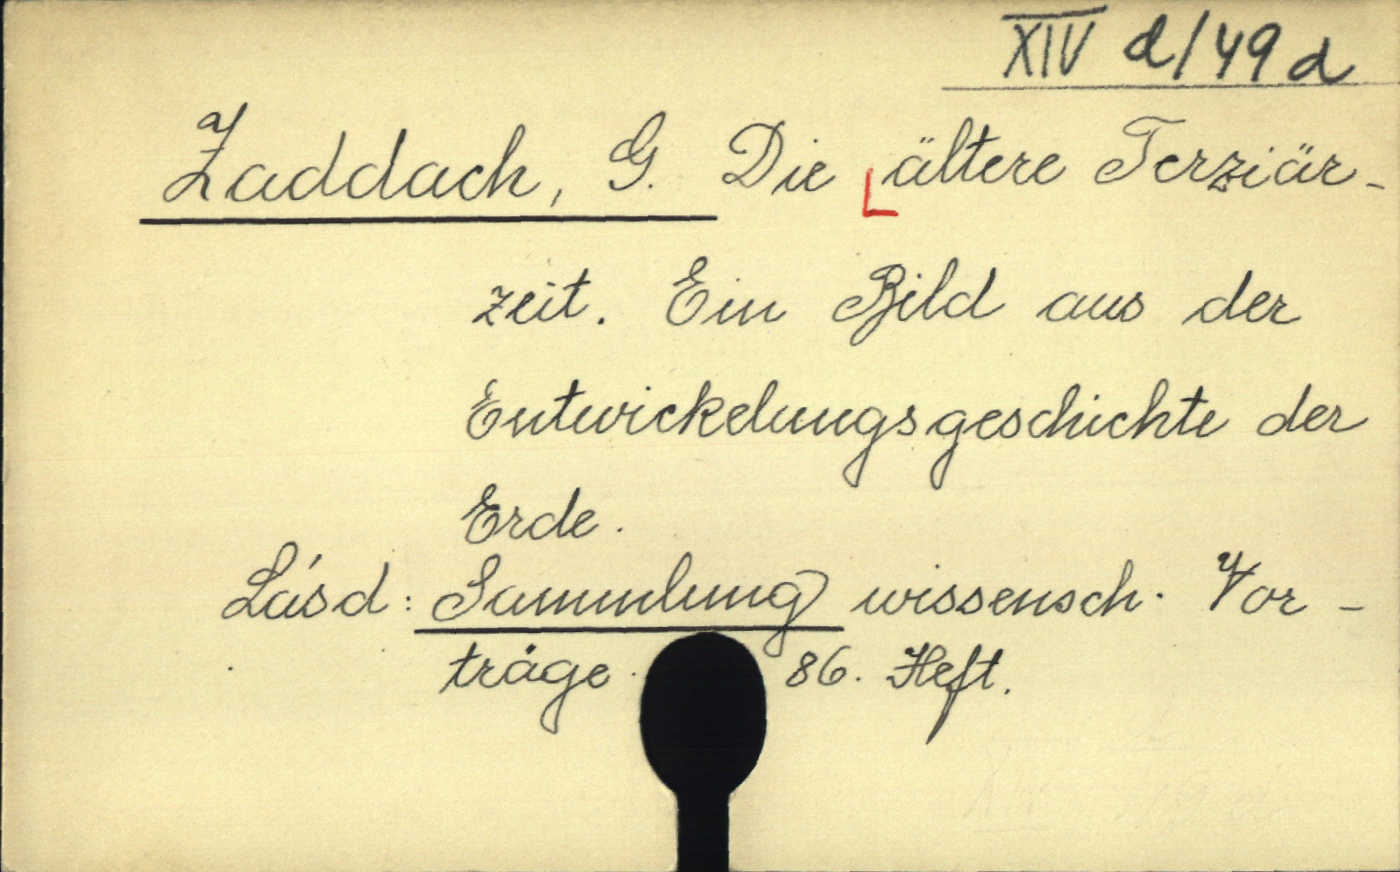 XIV d/49 d
Zaddach, G. Die ältere Terziär-
zeit. Ein Bild aus der
Entwickelungsgeschichte der
Erde.
Lásd: Sammlung wissensch. Vor-
träge. 86. Heft.